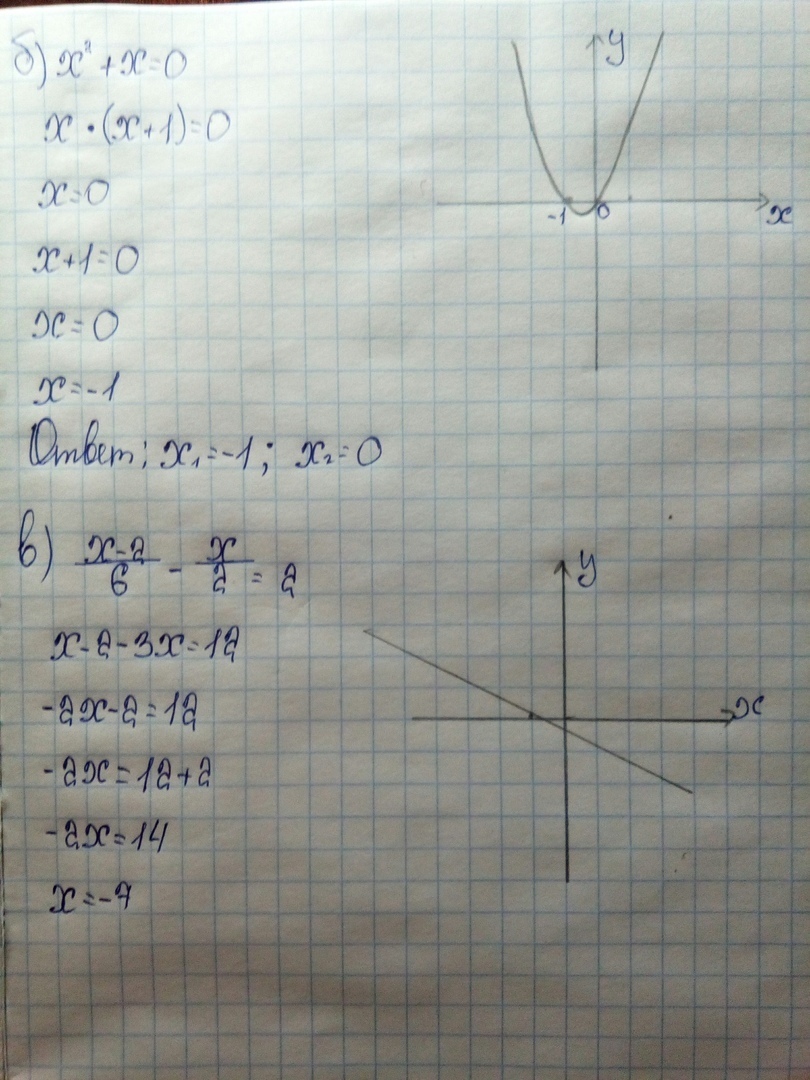 б) x² + x = 0
x · (x+1) = 0
x = 0
x+1 = 0
x = 0
x = -1
Ответ: x₁ = -1; x₂ = 0
y
-1 0 x
в) \frac{x-2}{6} - \frac{x}{2} = 2
x-2-3x=12
-2x-2=12
-2x=12+2
-2x=14
x=-7
y
x